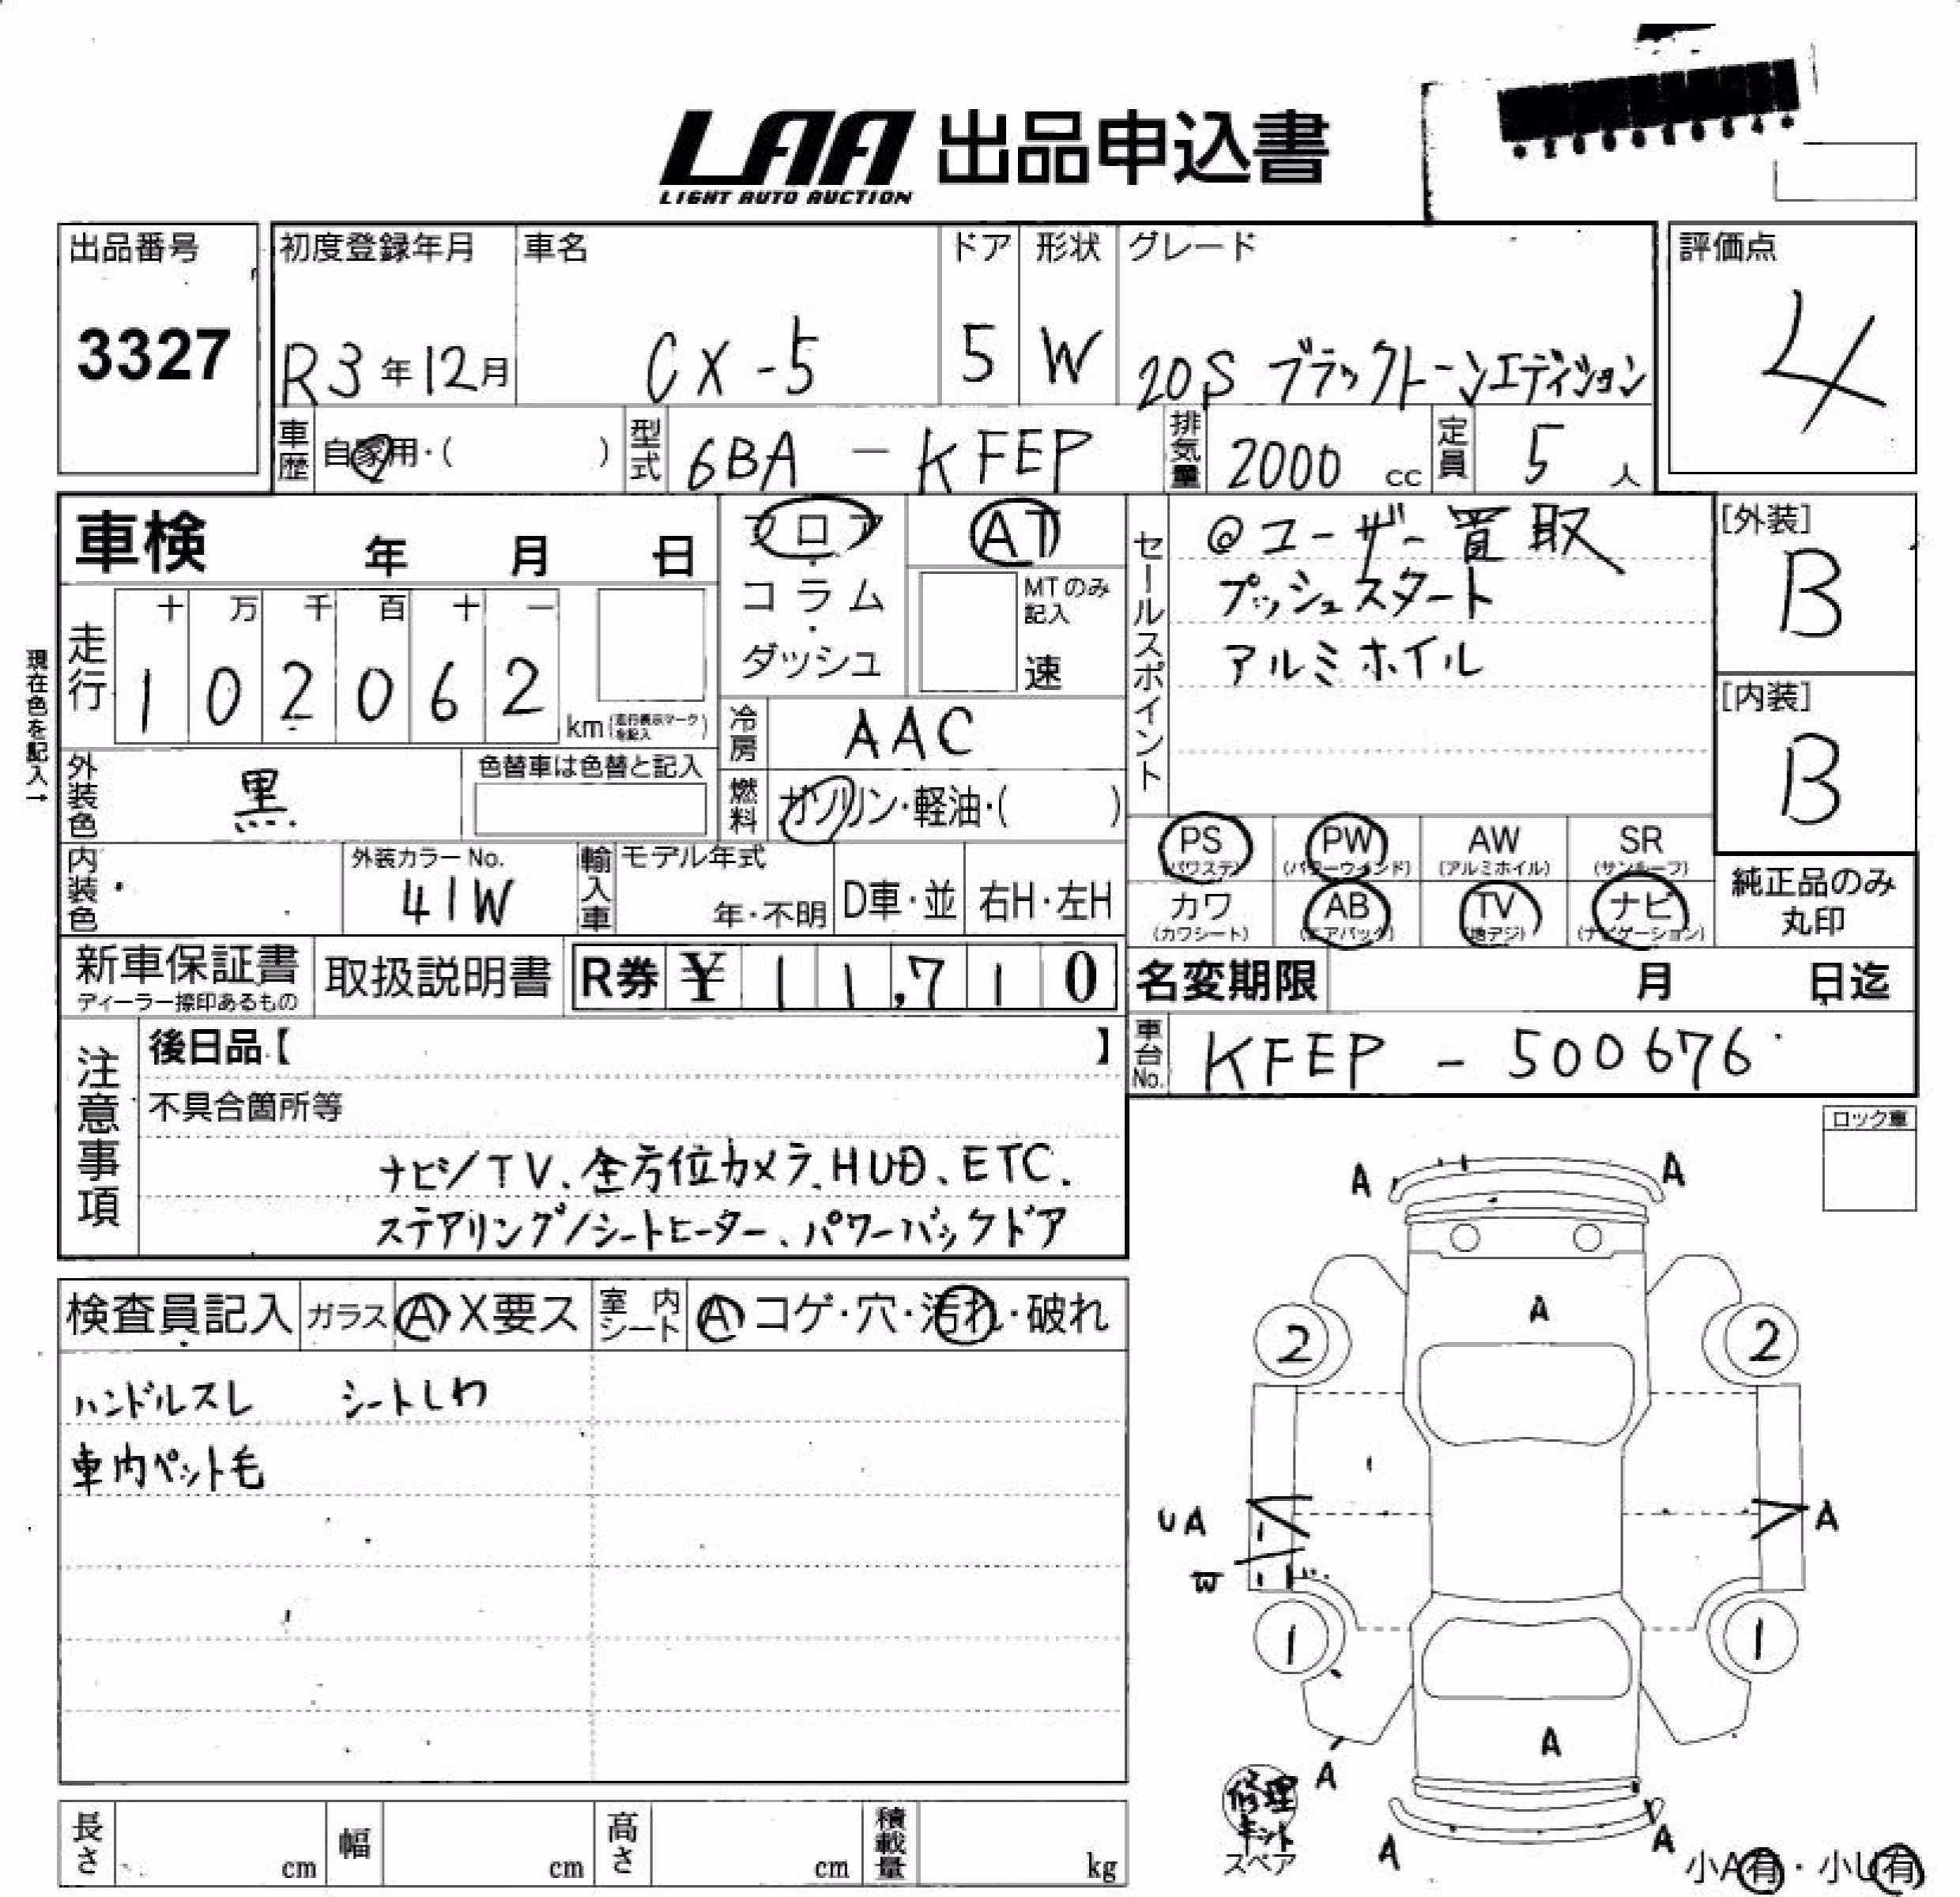 LAA 出品申込書
LIGHT AUTO AUCTION
出品番号
3327
初度登録年月
R3年12月
車名
CX-5
ドア
5
形状
W
グレード
20S ブラックトーンエディション
評価点
4
車歴
自家用・( )
型式
6BA - KFEP
排気量
2000 cc
定員
5 人
車検 年 月 日
フロア・コラム・ダッシュ
AT
MTのみ記入
速
セールスポイント
@ユーザー買取
プッシュスタート
アルミホイル
[外装]
B
[内装]
B
現在色を記入→
走行
十 万 千 百 十 一
1 0 2 0 6 2
km(走行表示マークを記入)
冷房
AAC
外装色
黒
色替車は色替と記入
燃料
ガソリン・軽油・( )
PS (パワステ)
PW (パワーウインド)
AW (アルミホイル)
SR (サンルーフ)
カワ (カワシート)
AB (エアバック)
TV (地デジ)
ナビ (ナビゲーション)
純正品のみ
丸印
内装色
外装カラーNo.
41W
輸入車
モデル年式
年・不明
D車・並
右H・左H
新車保証書
ディーラー捺印あるもの
取扱説明書
R券 ¥ 1 1,7 1 0
名変期限 月 日迄
車台No.
KFEP - 500676
注意事項
後日品【 】
不具合箇所等
ナビ/TV、全方位カメラ、HUD、ETC、
ステアリング/シートヒーター、パワーバックドア
ロック車
検査員記入
ガラス A X要ス
室内シート A コゲ・穴・汚れ・破れ
ハンドルスレ シートしわ
車内ペット毛
A A
A
2 2
UA A
W
1 1
A
A
A A
修理
キット
スペア
小A有・小U有
長さ cm
幅 cm
高さ cm
積載量 kg